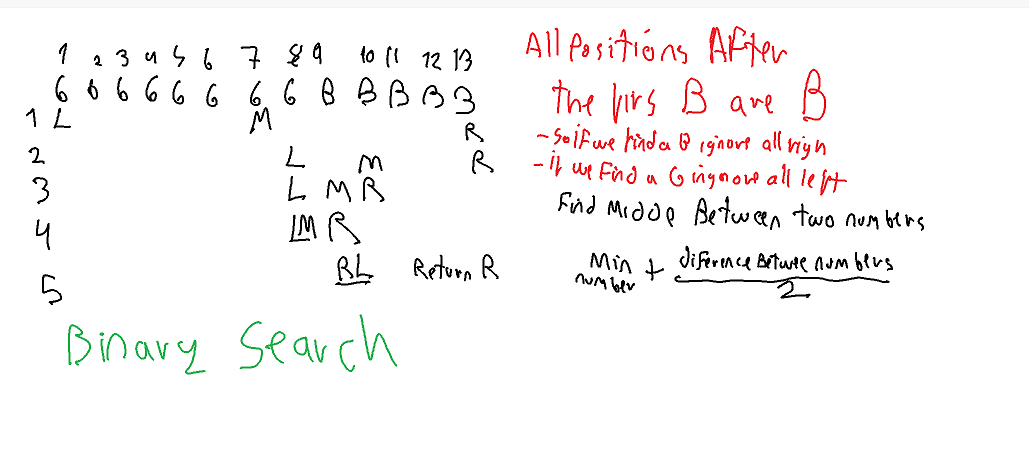 1 2 3 4 5 6 7 8 9 10 11 12 13
6 6 6 6 6 6 6 6 B B B B B
1 L M R
2 L M R
3 L M R
4 LM R
5 RL Return R
Binary Search
All Positions After
the firs B are B
- So if we find a B ignore all righ
- if we Find a G ingnore all left
Find Middle Between two numbers
Min number + diference Betwee numbers
2